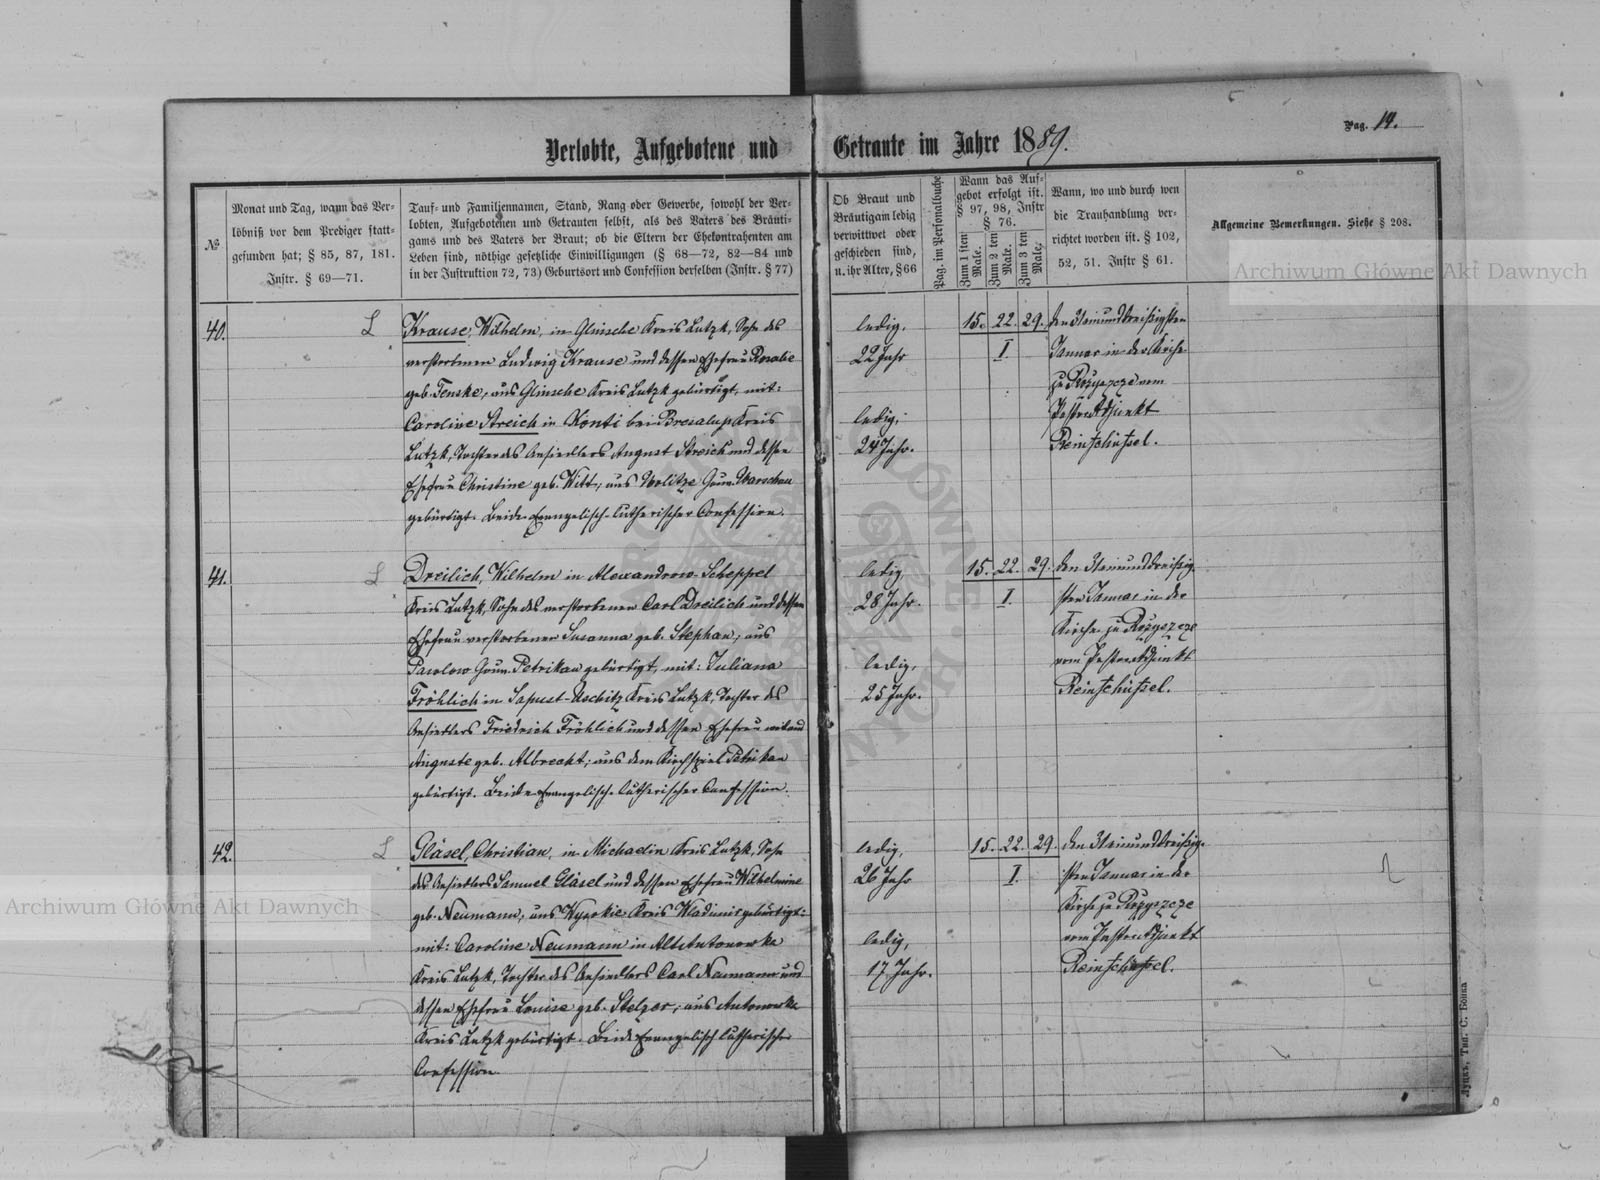 Pag. 14.
Verlobte, Aufgebotene und Getraute im Jahre 1889.
№
Monat und Tag, wann das Ver-
löbniß vor dem Prediger statt-
gefunden hat; § 85, 87, 181.
Instr. § 69—71.
Tauf- und Familiennamen, Stand, Rang oder Gewerbe, sowohl der Ver-
lobten, Aufgebotenen und Getrauten selbst, als des Vaters des Bräuti-
gams und des Vaters der Braut; ob die Eltern der Ehekontrahenten am
Leben sind, nöthige gesetzliche Einwilligungen (§ 68—72, 82—84 und
in der Instruktion 72, 73) Geburtsort und Confession derselben (Instr. § 77)
Ob Braut und
Bräutigam ledig
verwittwet oder
geschieden sind,
u. ihr Alter, § 66
Pag. im Personalbuche
Wann das Auf-
gebot erfolgt ist.
§ 97, 98, Instr
§ 76.
Zum 1 sten Male.
Zum 2 ten Male.
Zum 3 ten Male.
Wann, wo und durch wen
die Trauhandlung ver-
richtet worden ist. § 102,
52, 51. Instr § 61.
Allgemeine Bemerkungen. Siehe § 208.
Archiwum Główne Akt Dawnych
40.
L
Krause, Wilhelm, in Glinische Kreis Lutzk, Sohn des
verstorbenen Ludwig Krause und dessen Ehefrau Rosalie
geb. Tenske, aus Glinische Kreis Lutzk gebürtigt, mit:
Caroline Streich in Konti bei Bresalup Kreis
Lutzk, Tochter des Ansiedlers August Streich und dessen
Ehefrau Christine geb. Witt, aus Gouv. Warschau
gebürtigt. Beide Evangelisch-lutherischer Confession.
ledig,
22 Jahr
ledig,
24 Jahr.
15. 22. 29.
I.
den Einunddreißigsten
Januar in der Kirche
zu Rozyszcze vom
Pastor Adjunkt
Reinschüssel.
41.
L
Dreilich, Wilhelm in Alexandrow-Scheppel
Kreis Lutzk, Sohn des verstorbenen Carl Dreilich und dessen
Ehefrau verstorbenen Susanna geb. Stephan, aus
Pawlow Gouv. Petrikau gebürtigt, mit: Juliana
Fröhlich in Sapust-Uschitz Kreis Lutzk, Tochter des
Ansiedlers Friedrich Fröhlich und dessen Ehefrau weiland
Auguste geb. Albrecht, aus dem Kirchspiel Petrikau
gebürtigt. Beide Evangelisch-lutherischer Confession.
ledig
28 Jahr.
ledig,
25 Jahr.
15. 22. 29.
I.
den Einunddreißig-
sten Januar in der
Kirche zu Rozyszcze
vom Pastor Adjunkt
Reinschüssel.
42.
L
Gläsel, Christian, in Michaelin Kreis Lutzk, Sohn
des Ansiedlers Samuel Gläsel und dessen Ehefrau Wilhelmine
geb. Neumann, aus Wysokie Kreis Wladimir gebürtigt:
mit: Caroline Neumann in Alt Antonowka
Kreis Lutzk, Tochter des Ansiedlers Carl Neumann und
dessen Ehefrau Louise geb. Stelzer, aus Antonowka
Kreis Lutzk gebürtigt. Beide Evangelisch lutherischer
Confession.
ledig,
26 Jahr
ledig,
17 Jahr.
15. 22. 29.
I.
den Einunddreißig-
sten Januar in der
Kirche zu Rozyszcze
vom Pastor Adjunkt
Reinschüssel.
Archiwum Główne Akt Dawnych
Луцкъ, Тип. С. Бонка